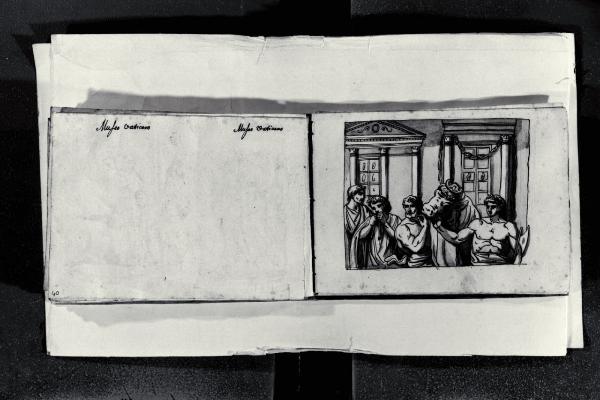 Museo Vaticano Museo Vaticano
40